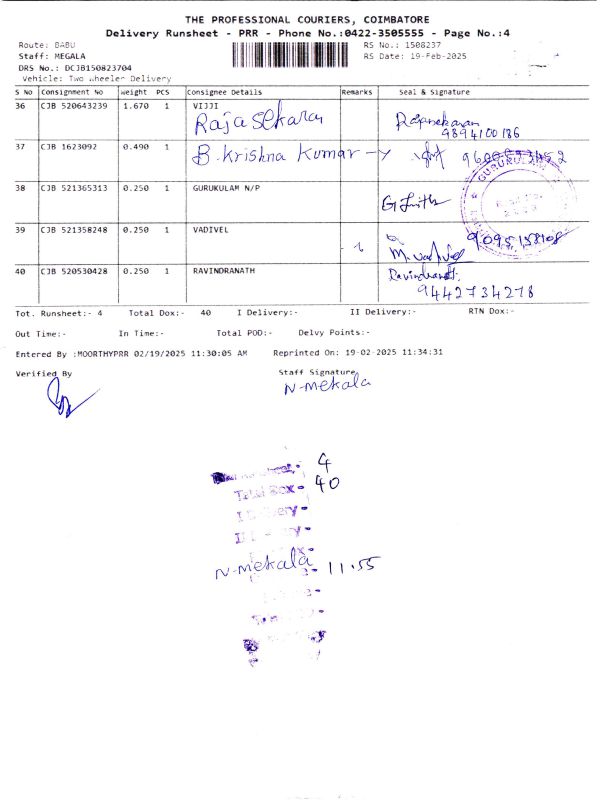 THE PROFESSIONAL COURIERS, COIMBATORE
Delivery Runsheet - PRR - Phone No.:0422-3505555 - Page No.:4
Route: BABU
RS No.: 1508237
Staff: MEGALA
RS Date: 19-Feb-2025
DRS No.: DCJB150823704
Vehicle: Two Wheeler Delivery
S No Consignment No Weight PCS Consignee Details Remarks Seal & Signature
36 CJB 520643239 1.670 1 VIJJI
Rajasekaran Rajasekaran
9894100186
37 CJB 1623092 0.490 1 B. Krishna Kumar
38 CJB 521365313 0.250 1 GURUKULAM N/P
GURUKULAM
39 CJB 521358248 0.250 1 VADIVEL
40 CJB 520530428 0.250 1 RAVINDRANATH Ravindranath
9442734278
Tot. Runsheet:- 4 Total Dox:- 40 I Delivery:- II Delivery:- RTN Dox:-
Out Time:- In Time:- Total POD:- Delvy Points:-
Entered By :MOORTHYPRR 02/19/2025 11:30:05 AM Reprinted On: 19-02-2025 11:34:31
Verified By Staff Signature
N-mekala
4
Total Box - 40
N-mekala 11.55